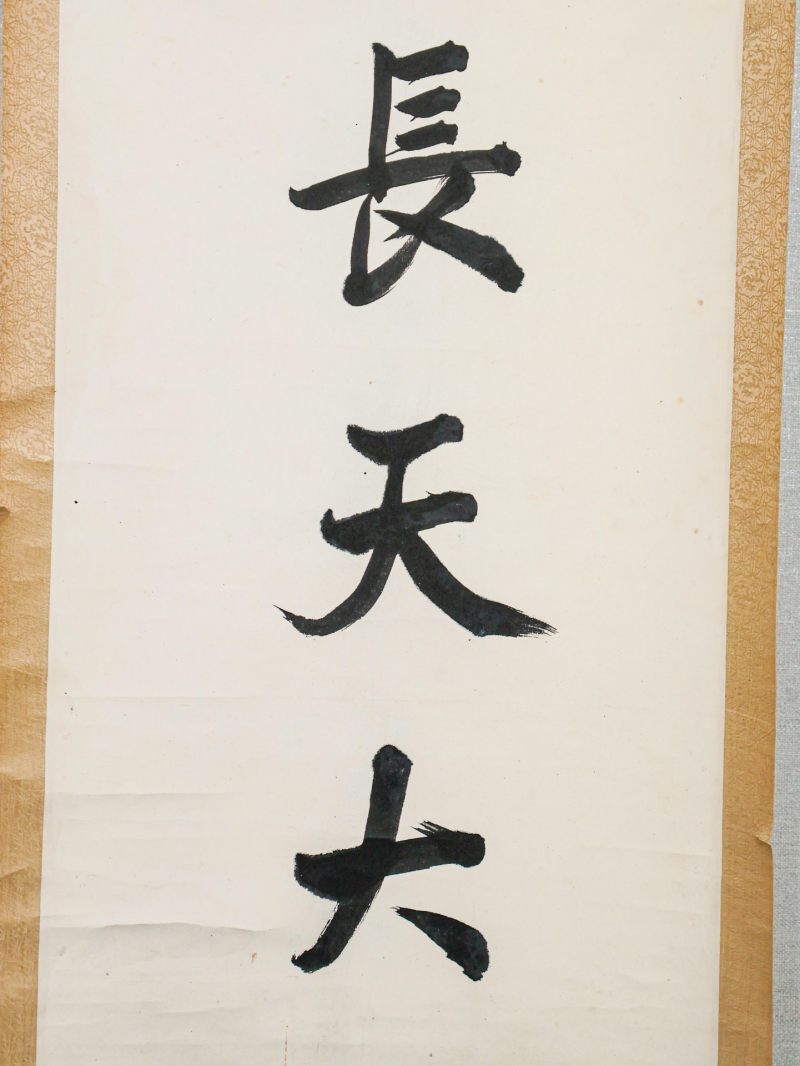 長天大